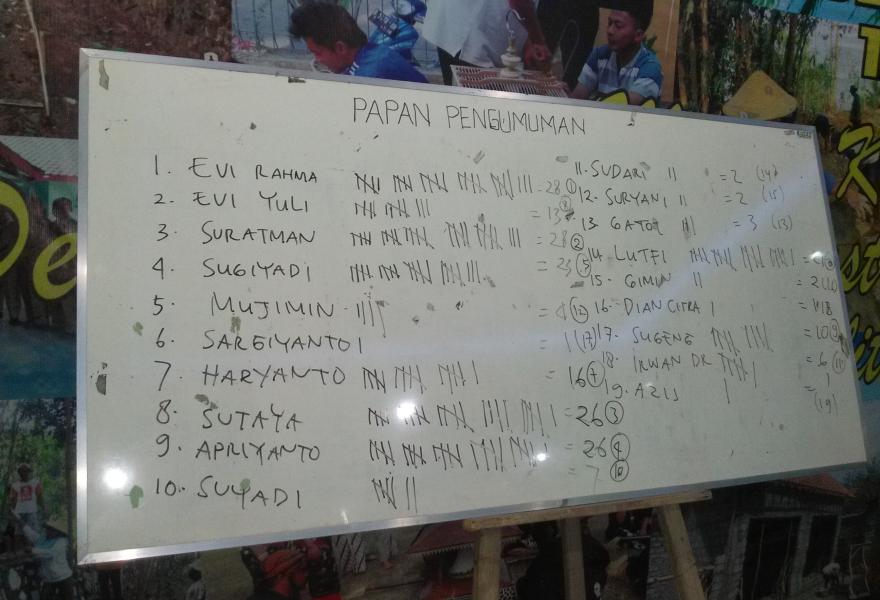 PAPAN PENGUMUMAN
1. EVI RAHMA = 28 ①
2. EVI YULI = 13 ⑧
3. SURATMAN = 28 ②
4. SUGIYADI = 23 ⑤
5. MUJIMIN = 4 ⑫
6. SAREIYANTO = 1 (17)
7. HARYANTO = 16 ⑦
8. SUTAYA = 26 ③
9. APRIYANTO = 26 ④
10. SUYADI = 7 ⑩
11. SUDARI = 2 (14)
12. SURYANI = 2 (15)
13. GATOT = 3 (13)
14. LUTFI =
15. GIMIN = 2
16. DIAN CITRA = 1 18
17. SUGENG = 10 ⑨
18. IRWAN DR = 6 ⑪
19. AZIS = 1 (19)